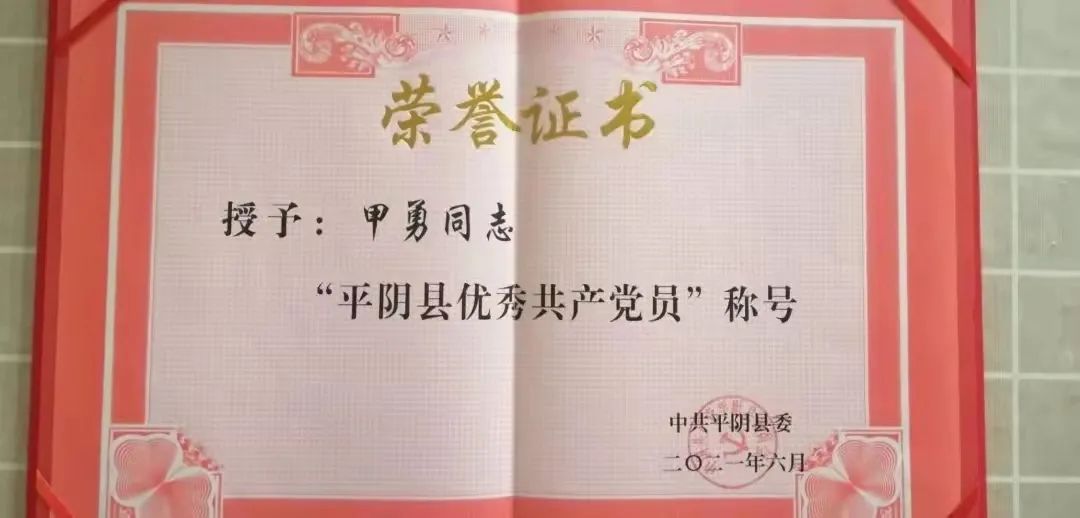 荣誉证书
授予：甲勇同志
“平阴县优秀共产党员”称号
中共平阴县委
二〇二一年六月